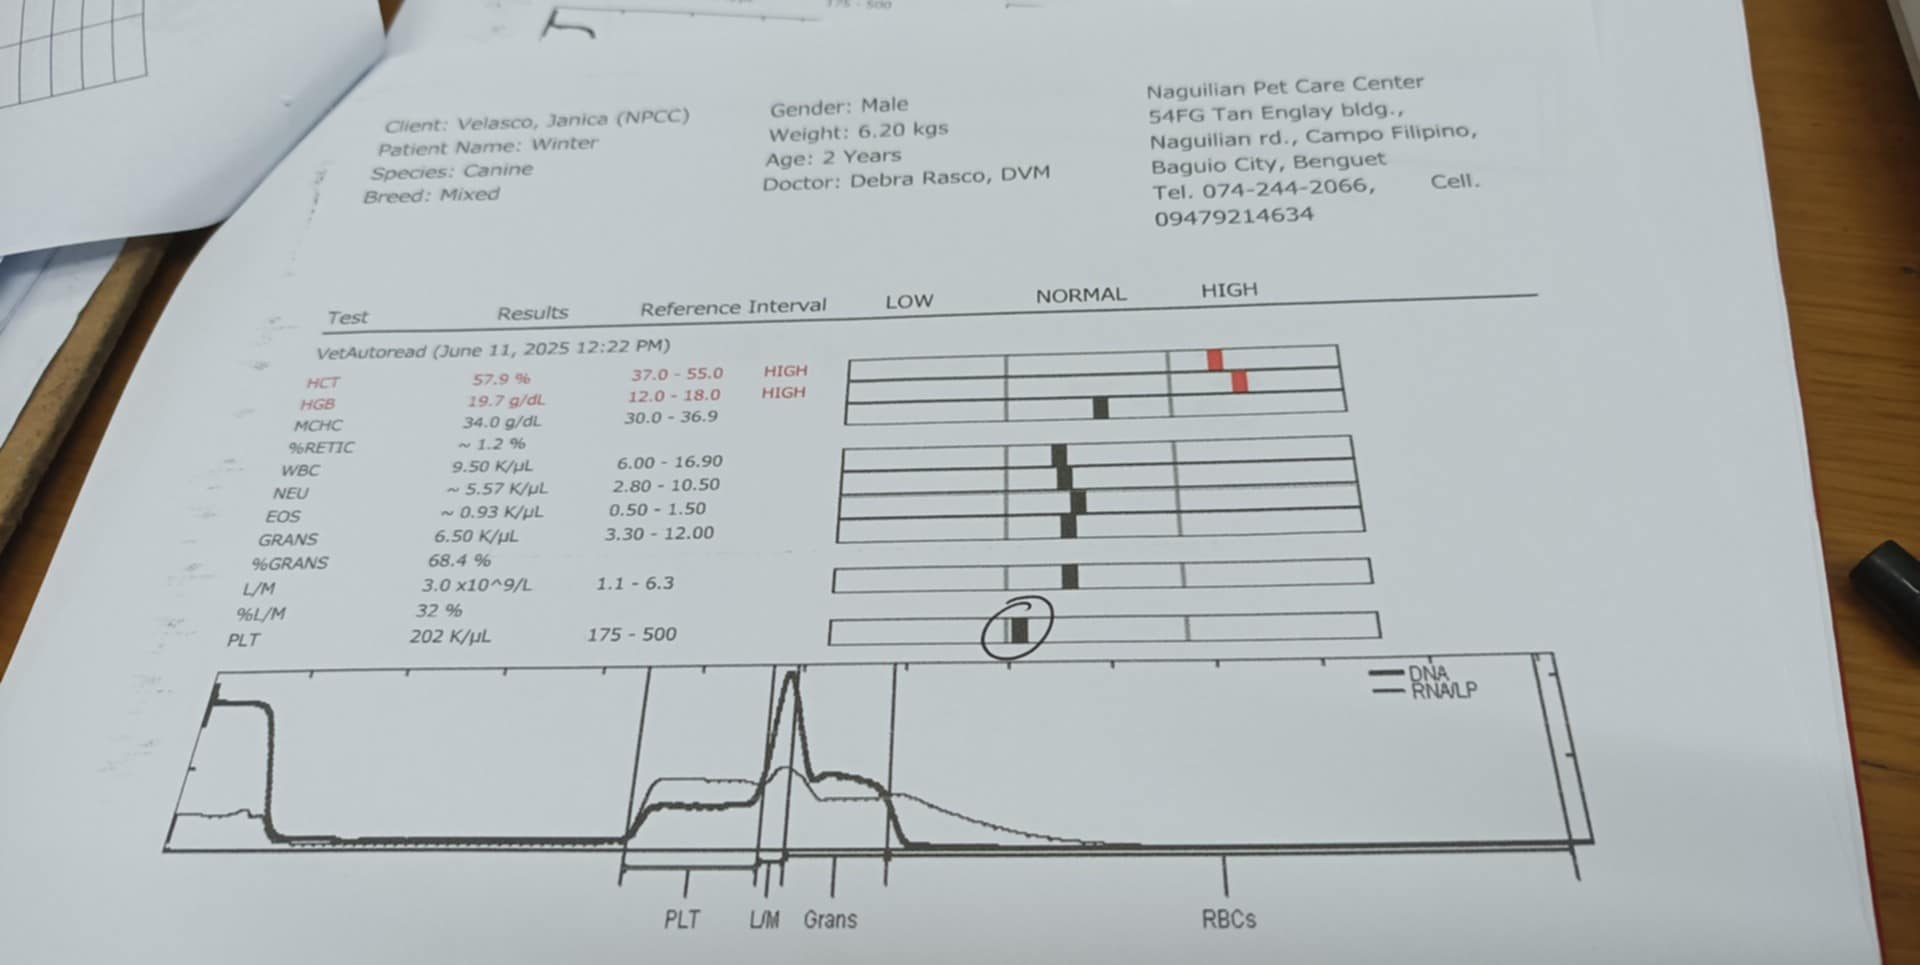 175 - 500
Client: Velasco, Janica (NPCC)
Patient Name: Winter
Species: Canine
Breed: Mixed
Gender: Male
Weight: 6.20 kgs
Age: 2 Years
Doctor: Debra Rasco, DVM
Naguilian Pet Care Center
54FG Tan Englay bldg.,
Naguilian rd., Campo Filipino,
Baguio City, Benguet
Tel. 074-244-2066, Cell.
09479214634
Test Results Reference Interval LOW NORMAL HIGH
VetAutoread (June 11, 2025 12:22 PM)
HCT 57.9 % 37.0 - 55.0 HIGH
HGB 19.7 g/dL 12.0 - 18.0 HIGH
MCHC 34.0 g/dL 30.0 - 36.9
%RETIC ~ 1.2 %
WBC 9.50 K/µL 6.00 - 16.90
NEU ~ 5.57 K/µL 2.80 - 10.50
EOS ~ 0.93 K/µL 0.50 - 1.50
GRANS 6.50 K/µL 3.30 - 12.00
%GRANS 68.4 %
L/M 3.0 x10^9/L 1.1 - 6.3
%L/M 32 %
PLT 202 K/µL 175 - 500
DNA
RNA/LP
PLT L/M Grans RBCs